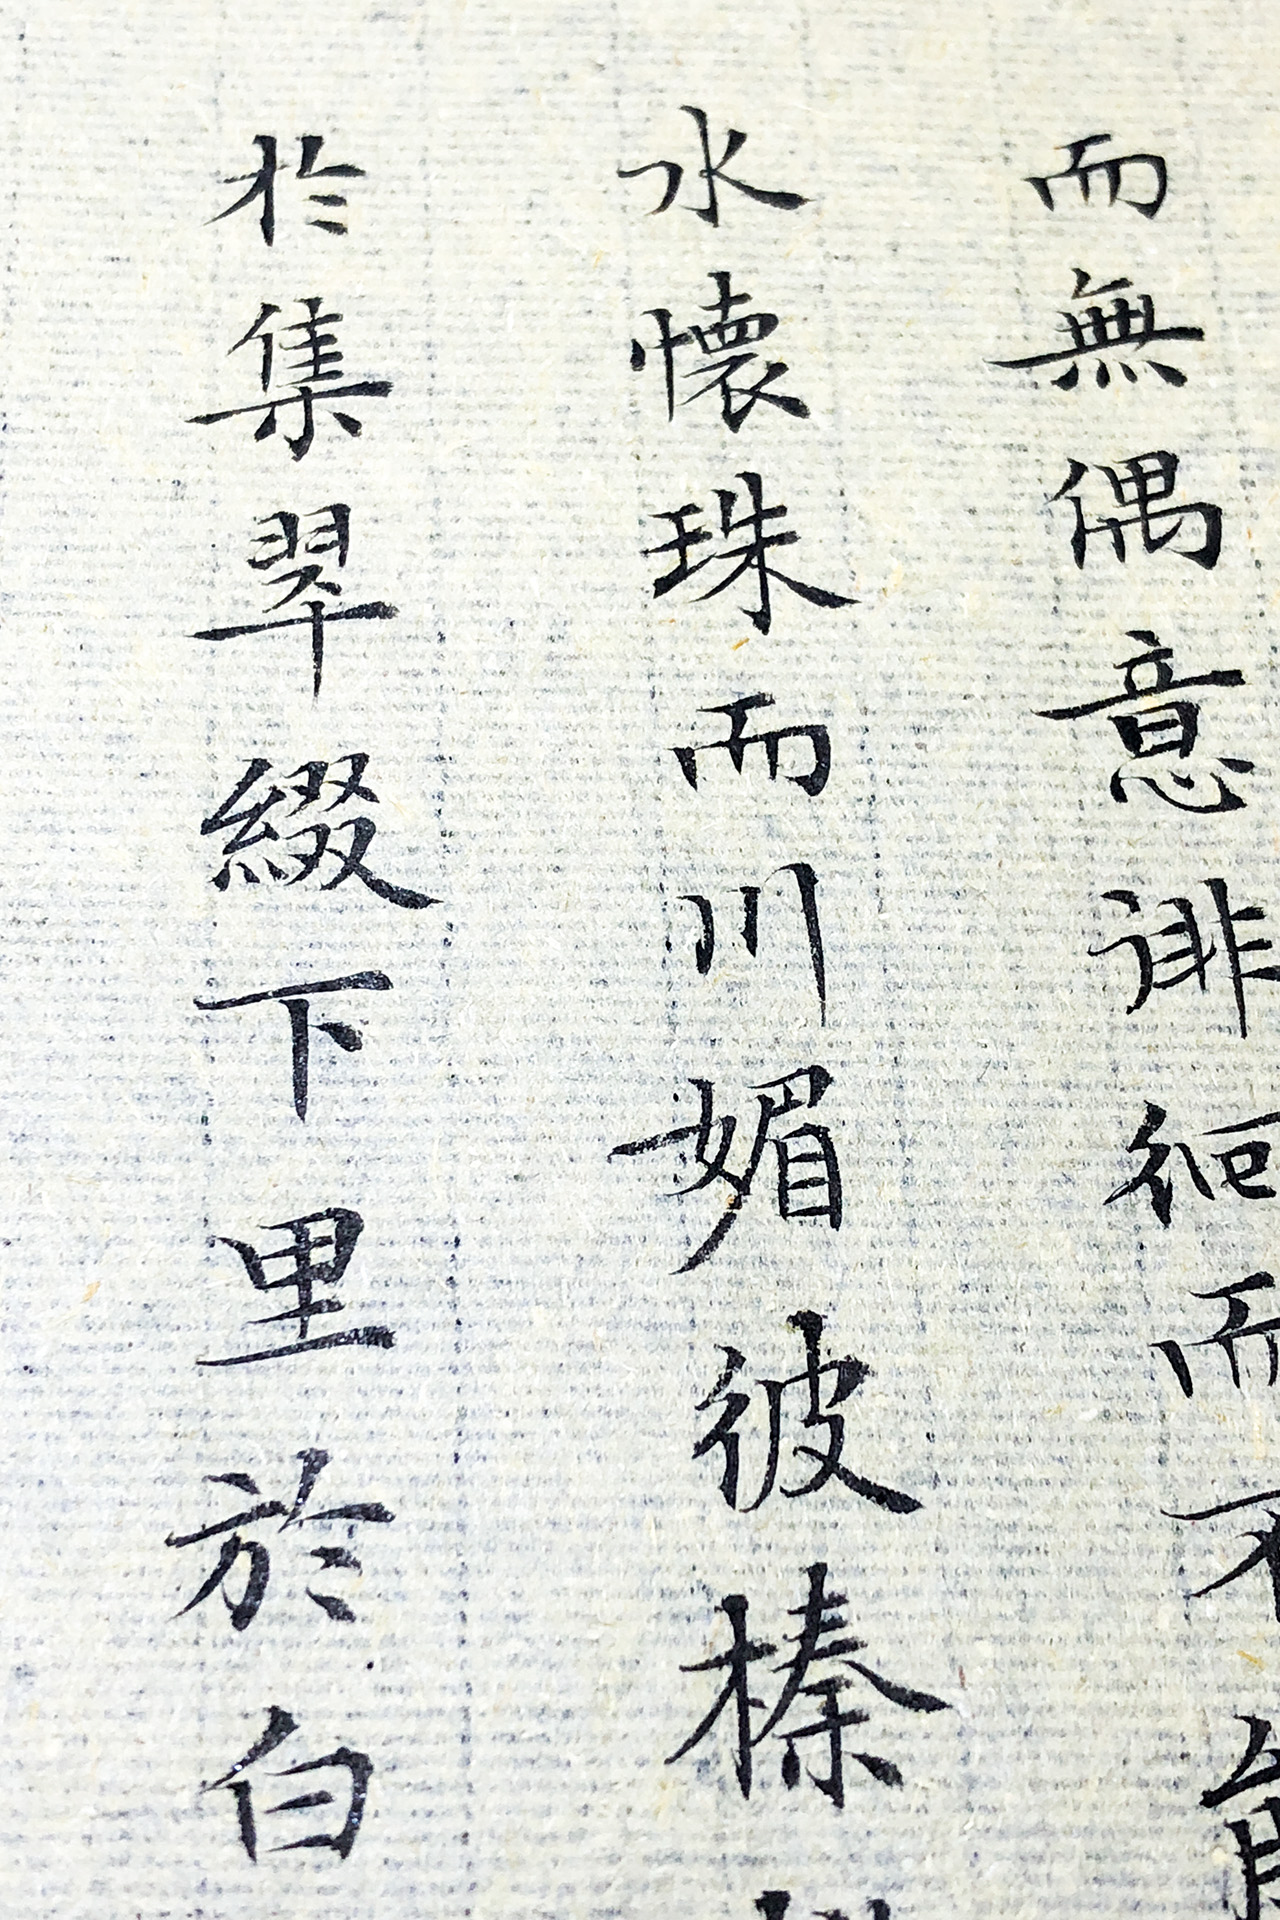 而無偶意徘徊而不能
水懷珠而川媚彼榛
扵集翠綴下里於白